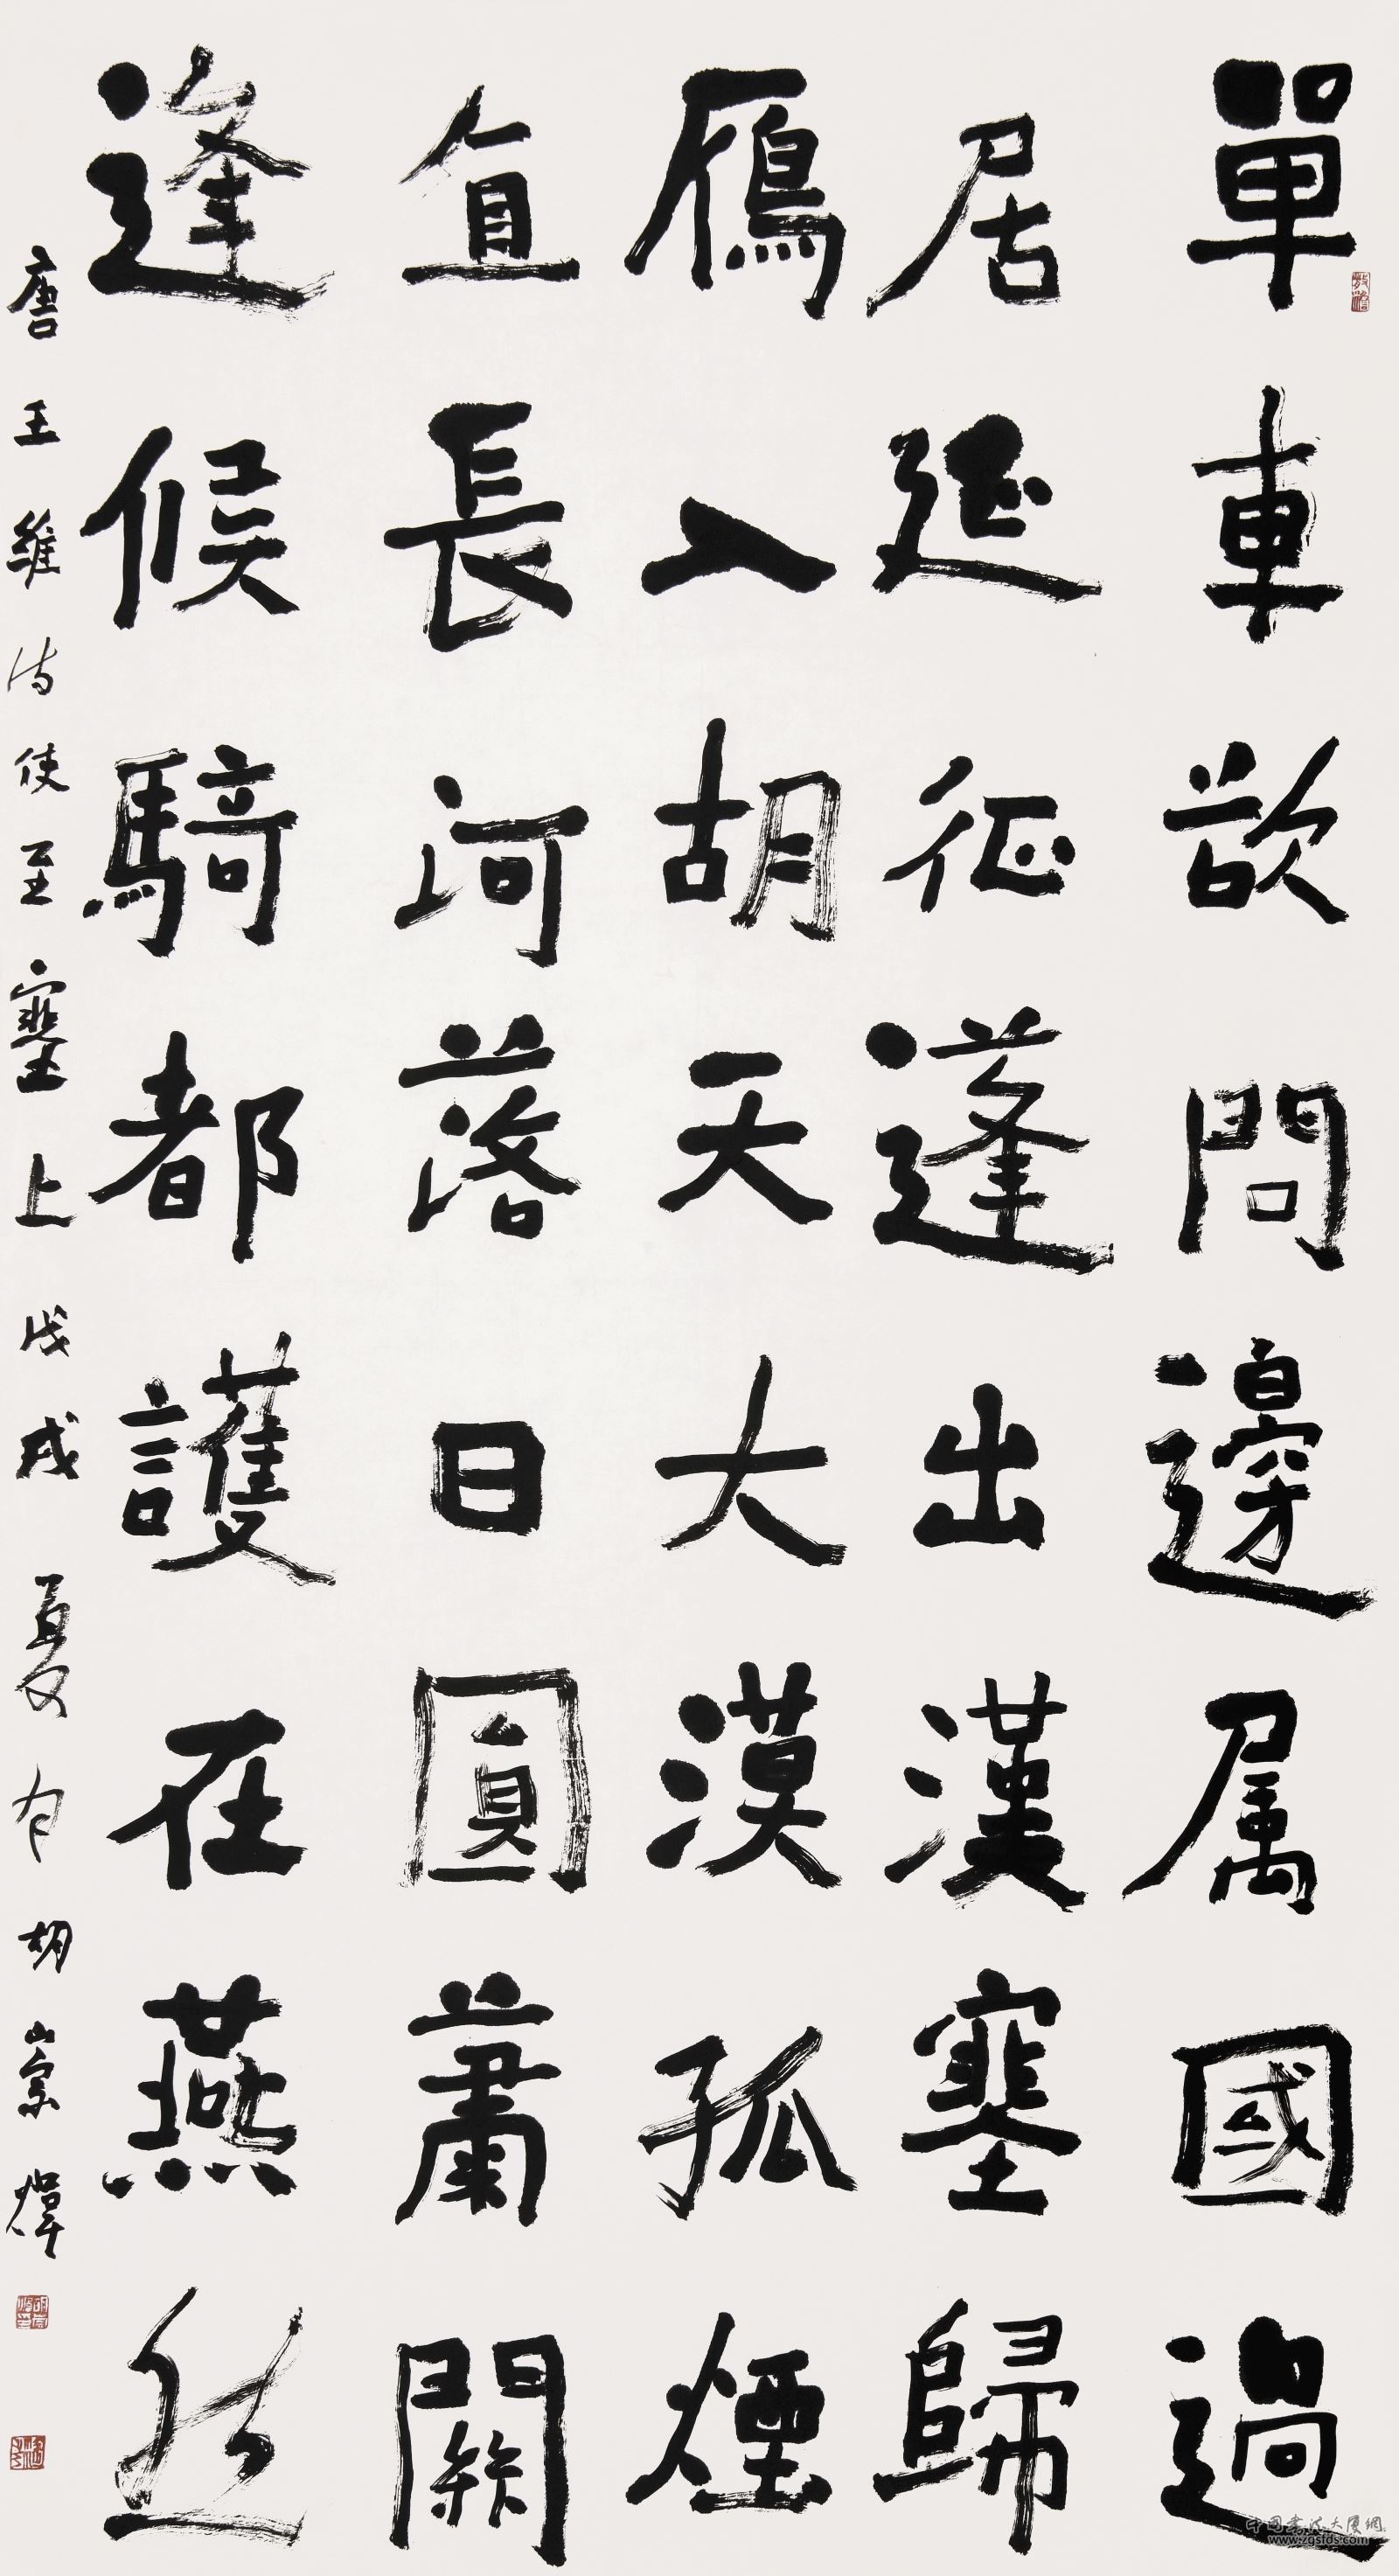 單車欲問邊属國過
居延征蓬出漢塞歸
鴈入胡天大漠孤煙
直長河落日圓蕭關
逢候騎都護在燕然
唐王維詩使至塞上戊戌夏月胡崇煒
中国书法大厦網
www.zgsfds.com